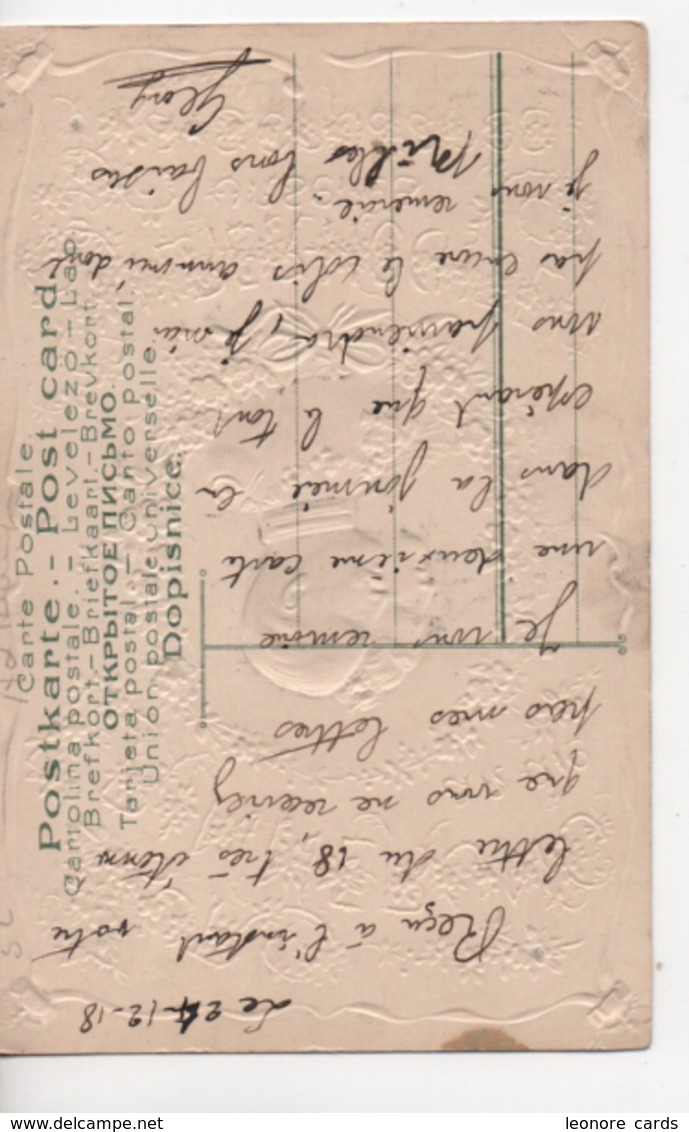 Carte Postale
Postkarte.- Post card
Cartolina postale.- Levelező-Lap.
Brefkort.-Briefkaart.-Brevkort.
ОТКРЫТОЕ ПИСЬМО.
Tarjeta postal.- Canto postal
Union postale universelle.
Dopisnice.
Le 24-12-18
Reçu à l'instant votre
lettre du 18, très étonné
que vous ne receviez
pas mes lettres
Je vous renvoie
une deuxième carte
dans la journée la
espérant que le tout
vous parviendra, je n'ai
pas encore le colis annoncé dont
je vous remercie.
Milles bons baisers
Géory
delcampe.net
leonore cards